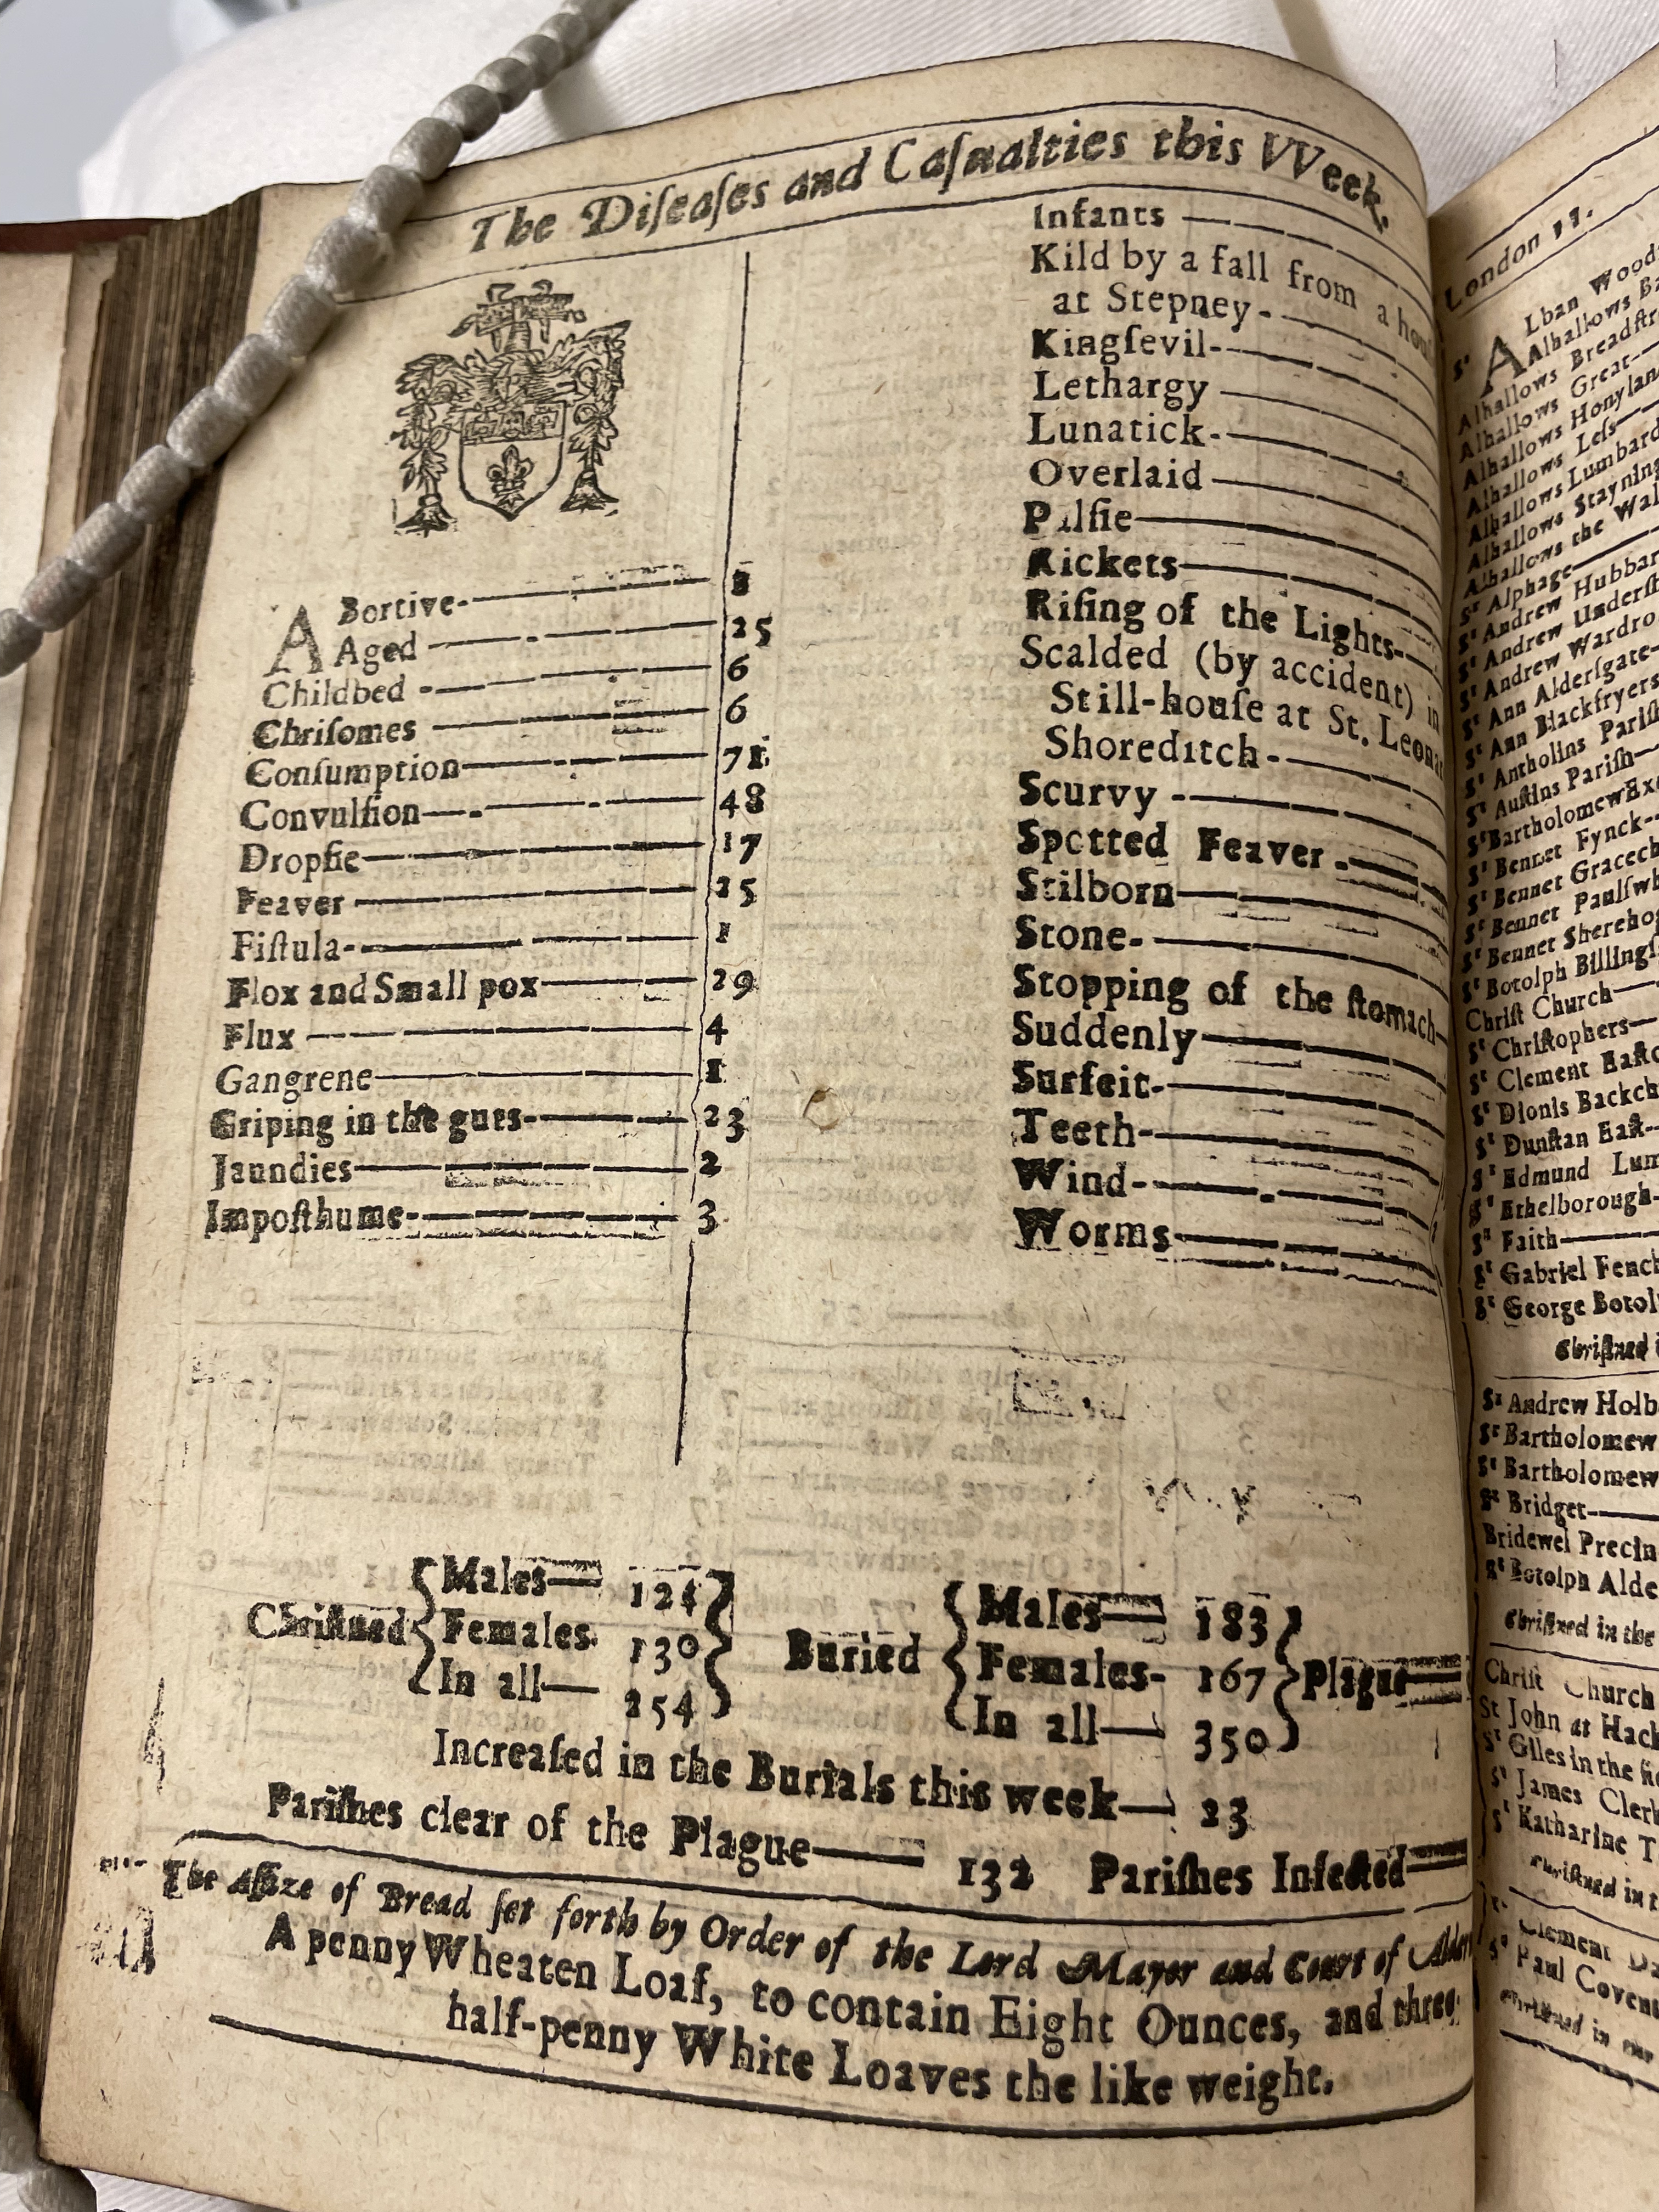 The Diſeaſes and Caſualties this VVeek.
ABortive- 
Aged 25
Childbed 6
Chriſomes 6
Conſumption 71
Convulſion 48
Dropſie 17
Feaver 25
Fiſtula- 1
Flox and Small pox 29
Flux 4
Gangrene 1
Griping in the guts- 23
Jaundies 2
Impoſthume- 3
Infants
Kild by a fall from a
at Stepney-
Kingſevil-
Lethargy
Lunatick-
Overlaid
Palſie
Rickets
Riſing of the Lights-
Scalded (by accident) in
Still-houſe at St.
Shoreditch-
Scurvy -
Spotted Feaver -
Stilborn
Stone-
Stopping of the ſtomach
Suddenly
Surfeit-
Teeth-
Wind-
Worms
Chriſtned
Males— 124
Females 130
In all— 254
Buried
Males— 183
Females- 167
In all— 350
Plague
Increaſed in the Burials this week— 23
Pariſhes clear of the Plague— 132 Pariſhes Infected
The Aſſize of Bread ſet forth by Order of the Lord Mayor and Court of
A penny Wheaten Loaf, to contain Eight Ounces, and three
half-penny White Loaves the like weight.
London 11.
Sᵗ ALban
Alhallows
Alhallows
Alhallows Great
Alhallows
Alhallows Leſs
Alhallows
Alhallows
Alhallows the
Sᵗ Alphage
Sᵗ Andrew
Sᵗ Andrew
Sᵗ Andrew
Sᵗ Ann Alderſgate
Sᵗ Ann Blackfryers
Sᵗ Antholins
Sᵗ Auſtins Pariſh
Sᵗ Bartholomew
Sᵗ Bennet Fynck
Sᵗ Bennet
Sᵗ Bennet
Sᵗ Bennet
Sᵗ Botolph
Chriſt Church
Sᵗ Chriſtophers
Sᵗ Clement
Sᵗ Dionis
Sᵗ Dunſtan Eaſt
Sᵗ Edmund
Sᵗ Ethelborough
Sᵗ Faith
Sᵗ Gabriel
Sᵗ George
Chriſtned
Sᵗ Andrew
Sᵗ Bartholomew
Sᵗ Bartholomew
Sᵗ Bridget
Bridewel
Sᵗ Botolph
Chriſtned in the
Chriſt Church
St John at
Sᵗ Giles in the
Sᵗ James
Sᵗ Katharine
Clement
Sᵗ Paul